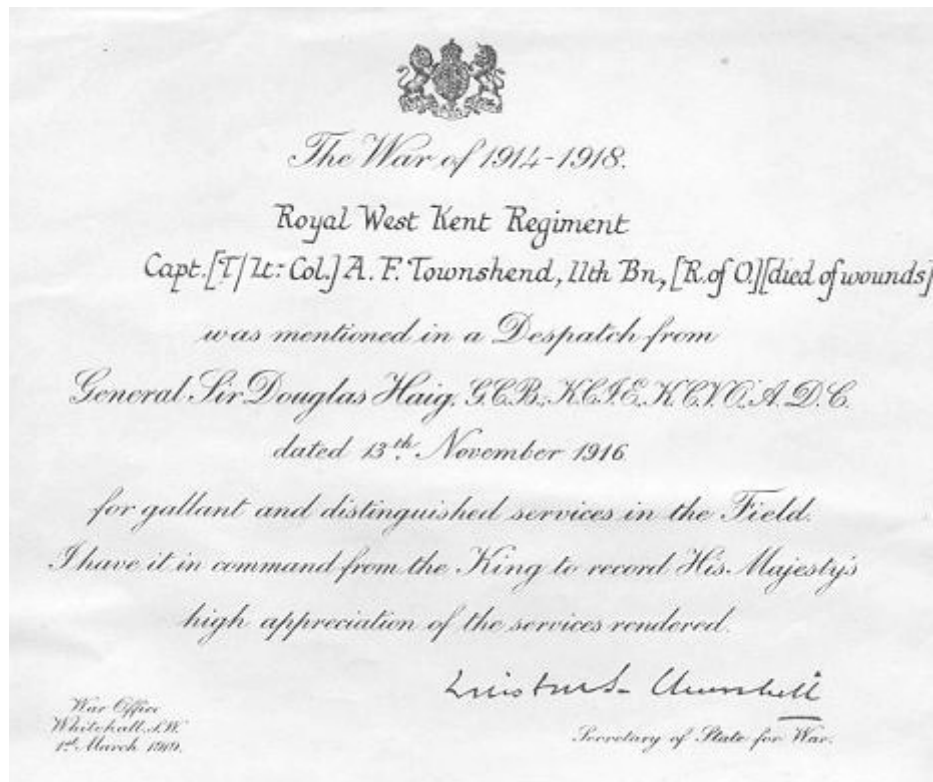 The War of 1914-1918.
Royal West Kent Regiment
Capt.[T/Lt:Col.] A. F. Townshend, 11th Bn, [R.of O.][died of wounds]
was mentioned in a Despatch from
General Sir Douglas Haig, G.C.B., K.C.I.E., K.C.V.O., A.D.C.
dated 13th November 1916
for gallant and distinguished services in the Field.
I have it in command from the King to record His Majesty's
high appreciation of the services rendered.
Winston S. Churchill
War Office
Whitehall, S.W.
1st March 1919.
Secretary of State for War.